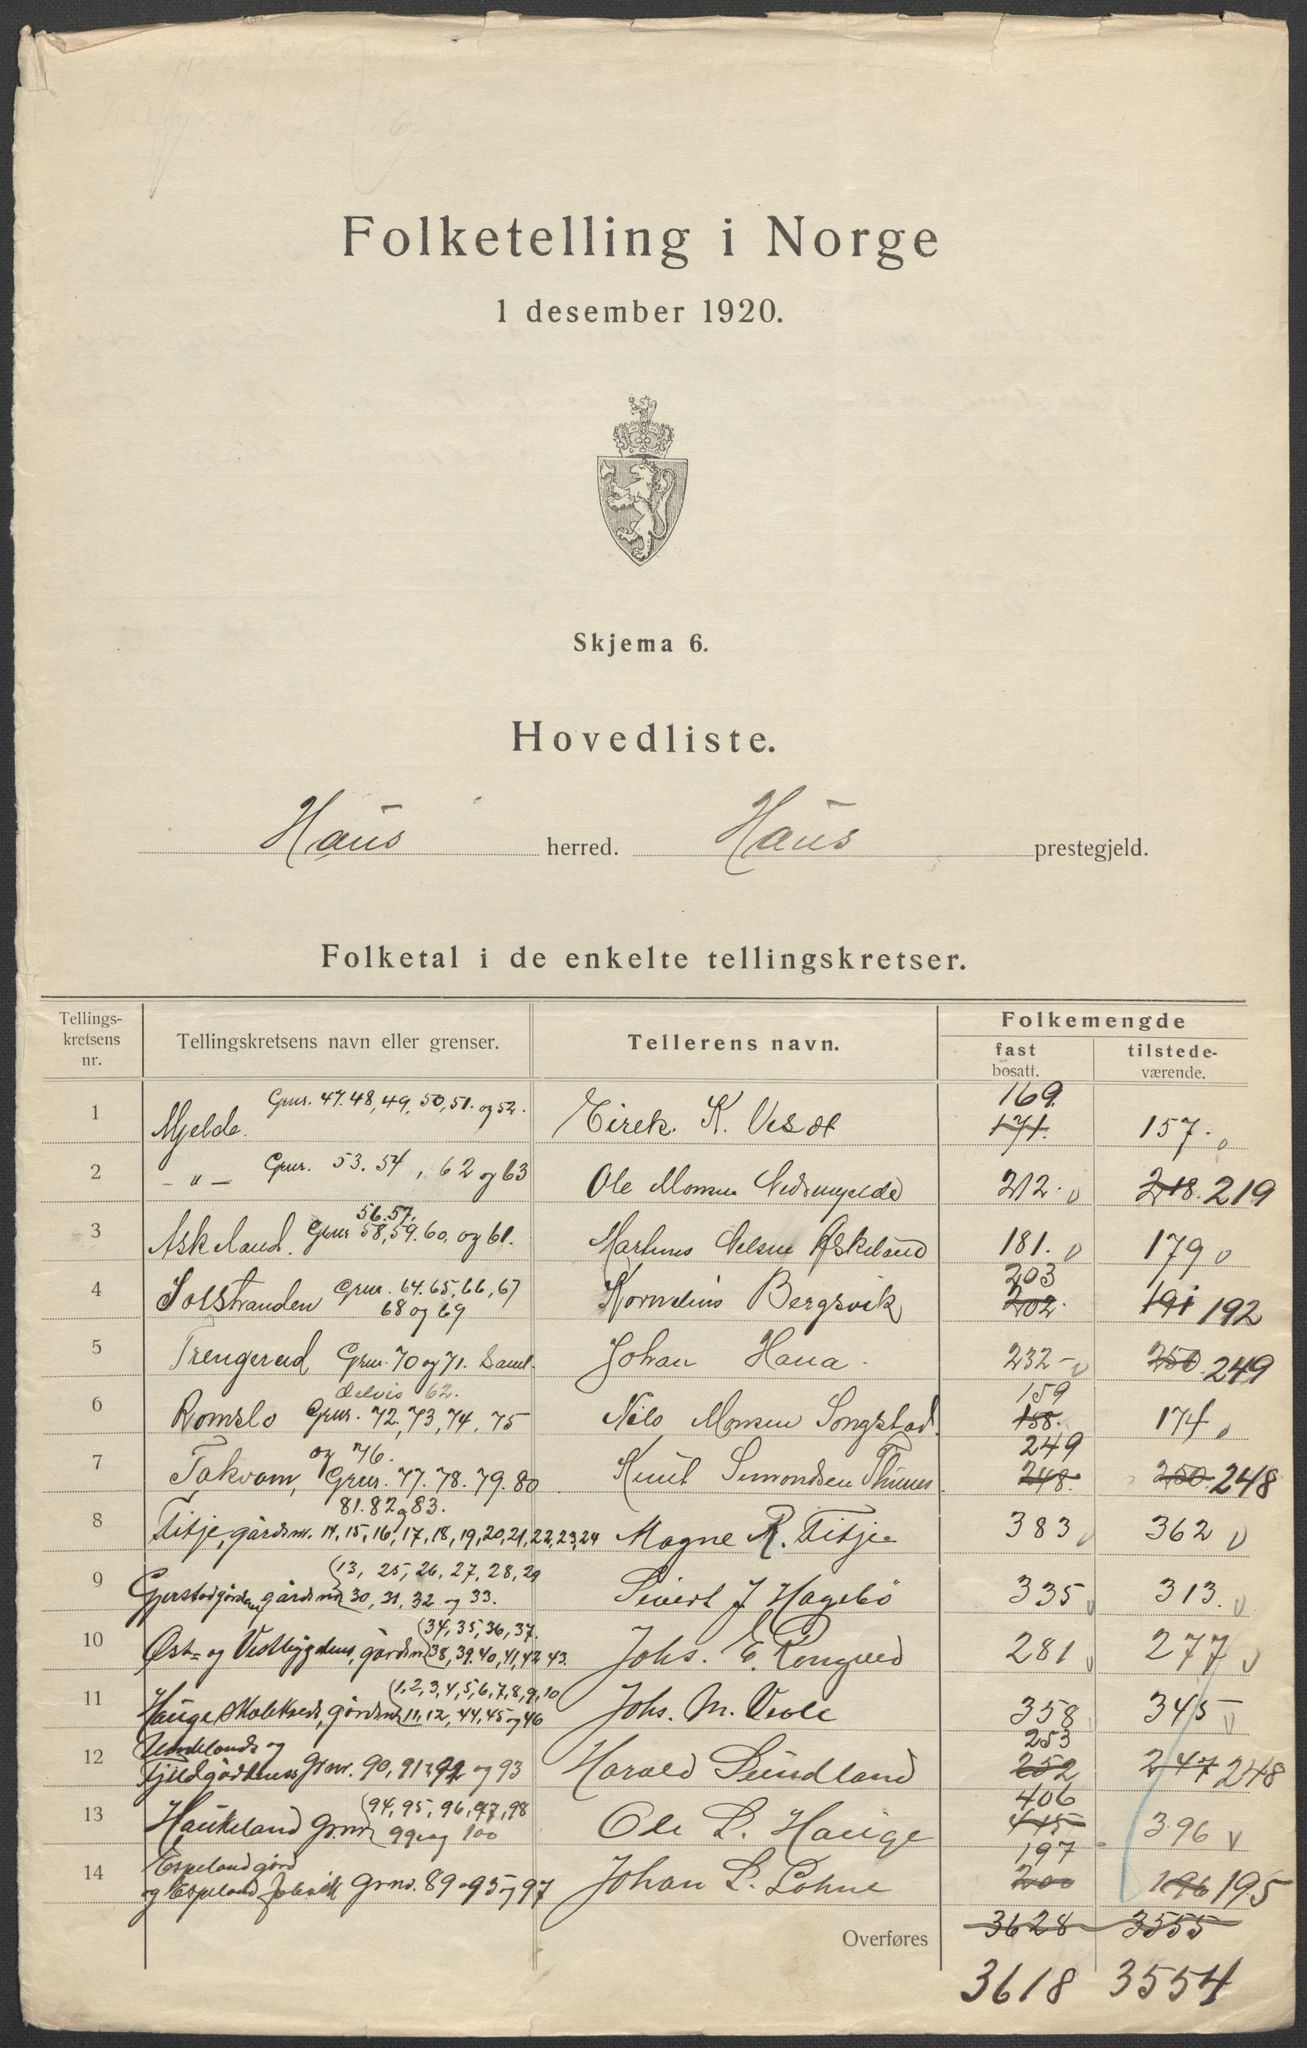 Folketelling i Norge
1 desember 1920.
Skjema 6.
Hovedliste.
Haus herred. Haus prestegjeld.
Folketal i de enkelte tellingskretser.
Tellings-kretsens nr. Tellingskretsens navn eller grenser. Tellerens navn. Folkemengde
fast bosatt. tilstede-værende.
169.
1 Mjelde. Gnr. 47. 48, 49, 50, 51. og 52. Eirek K. 171. 157.
2 - " - Gnr. 53. 54, 62 og 63 Ole Monsen 212. 218. 219
56. 57.
3 Askeland. Gnr 58, 59. 60, og 61. Martinus Nelsen Askeland 181. 179
203
4 Solstranden Gnr. 64. 65, 66, 67 Kornelius Bergsvik 202. 191 192
68 og 69
5 Trengereid Gnr. 70 og 71. Saml. Johan Hana. 232 250. 249
delvis 62. 159
6 Romslo Gnr. 72, 73, 74, 75 Nils Monsen Songstad. 158. 174
og 76. 249
7 Takvam, Gnr. 77. 78. 79. 80 Knut Simondsen 248. 250. 248
81. 82 og 83.
8 Titje, gårdsnr. 14, 15, 16, 17, 18, 19, 20, 21, 22, 23, 24 Magne R. Titje 383 362
13, 25, 26, 27, 28, 29
9 gårdsnr 30, 31, 32 og 33. Sivert J Hagebø 335 313.
34, 35, 36, 37.
10 Øst- og Vestbygdens, gårdsnr 38, 39. 40, 41, 42 43. Johs. E. 281 277
1, 2, 3, 4, 5, 6, 7, 8, 9, 10
11 Hauge skolekreds, gårdsnr 11, 12, 44, 45 og 46 Johs. M. 358 345
og 253
12 Gnr. 90, 91 92 og 93 Harald Sundland 252 247 248
94, 95, 96, 97, 98 406
13 Haukeland Gnr 99 og 100 Ole L. Hauge 415 396
Espeland gård 197
14 og Espeland Gnr. 89 og 95 og 97 Johan L. Lohne 200 196 195
Overføres 3628 3555
3618 3554